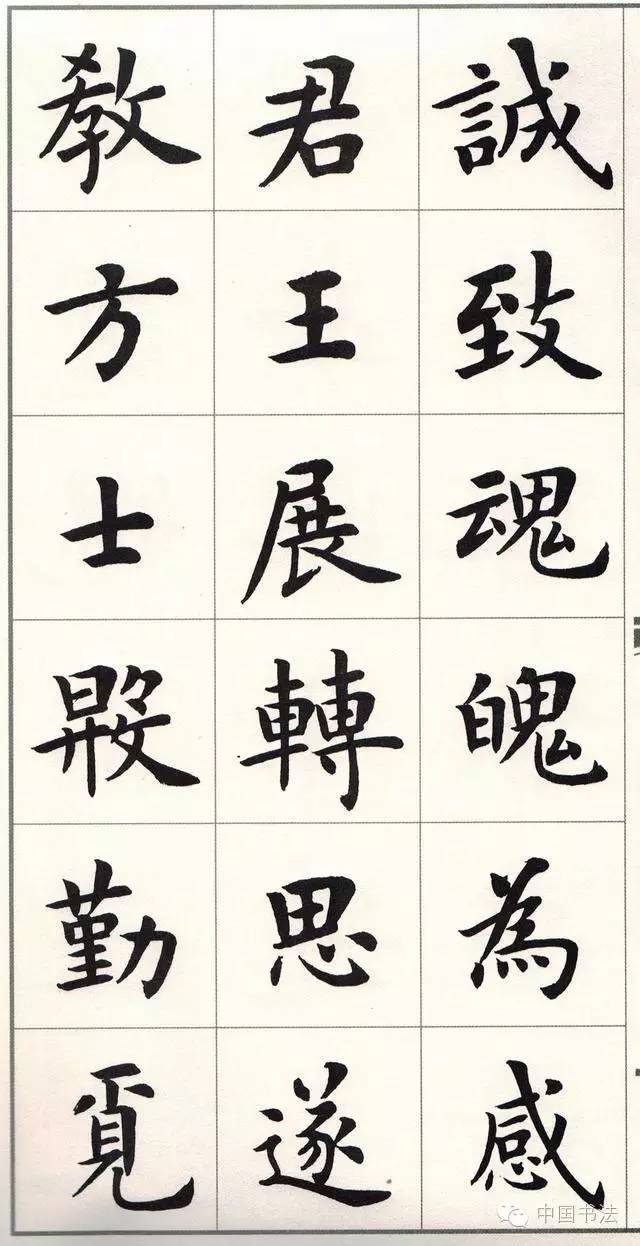 誠致魂魄為感
君王展轉思遂
教方士殷勤覓
中国书法